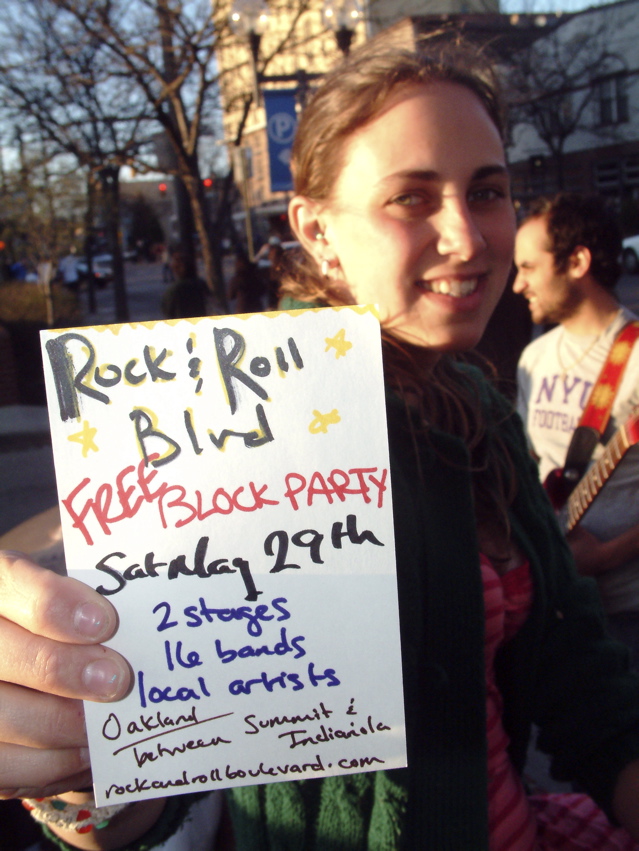 Rock & Roll
Blvd
FREE BLOCK PARTY
Saturday 29th
2 stages
16 bands
local artists
Oakland
between Summit &
Indianola
rockandrollboulevard.com
P
NYU
FOOTBALL